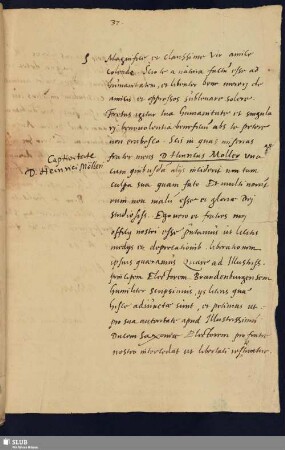 37.
S
Magnifice et clarissime vir amice
colende. Scio te a natura factum esse ad
humanitatem, et libenter bene mereri de
amicis et oppressos sublevare solere.
Fretus igitur tua humanitate et singula
ri benevolentia beneficium abs te petere
non erubesco. Scis in quas miserias
frater meus D Henricus Mollerus una
Captivitate
D. Heinrici Mölleri
culpa sua quam fato Et multi norunt
eum non mali esse et gloriae Dei
studiosiss. Ego vero et fratres mei
officij nostri esse putamus ut licitis
medijs et deprecationib. liberationem
ipsius quaeramus Quare ad Illustriss.
principem Electorem Brandenburgensem
humiliter scripsimus, ijs literis quae
hisce adiunctae sunt, et petimus ut
pro sua autoritate apud Illustrissimum
Ducem Saxoniae Electorem pro fratre
nostro intercedat ut libertati restituatur.
SLUB
Wir führen Wissen.